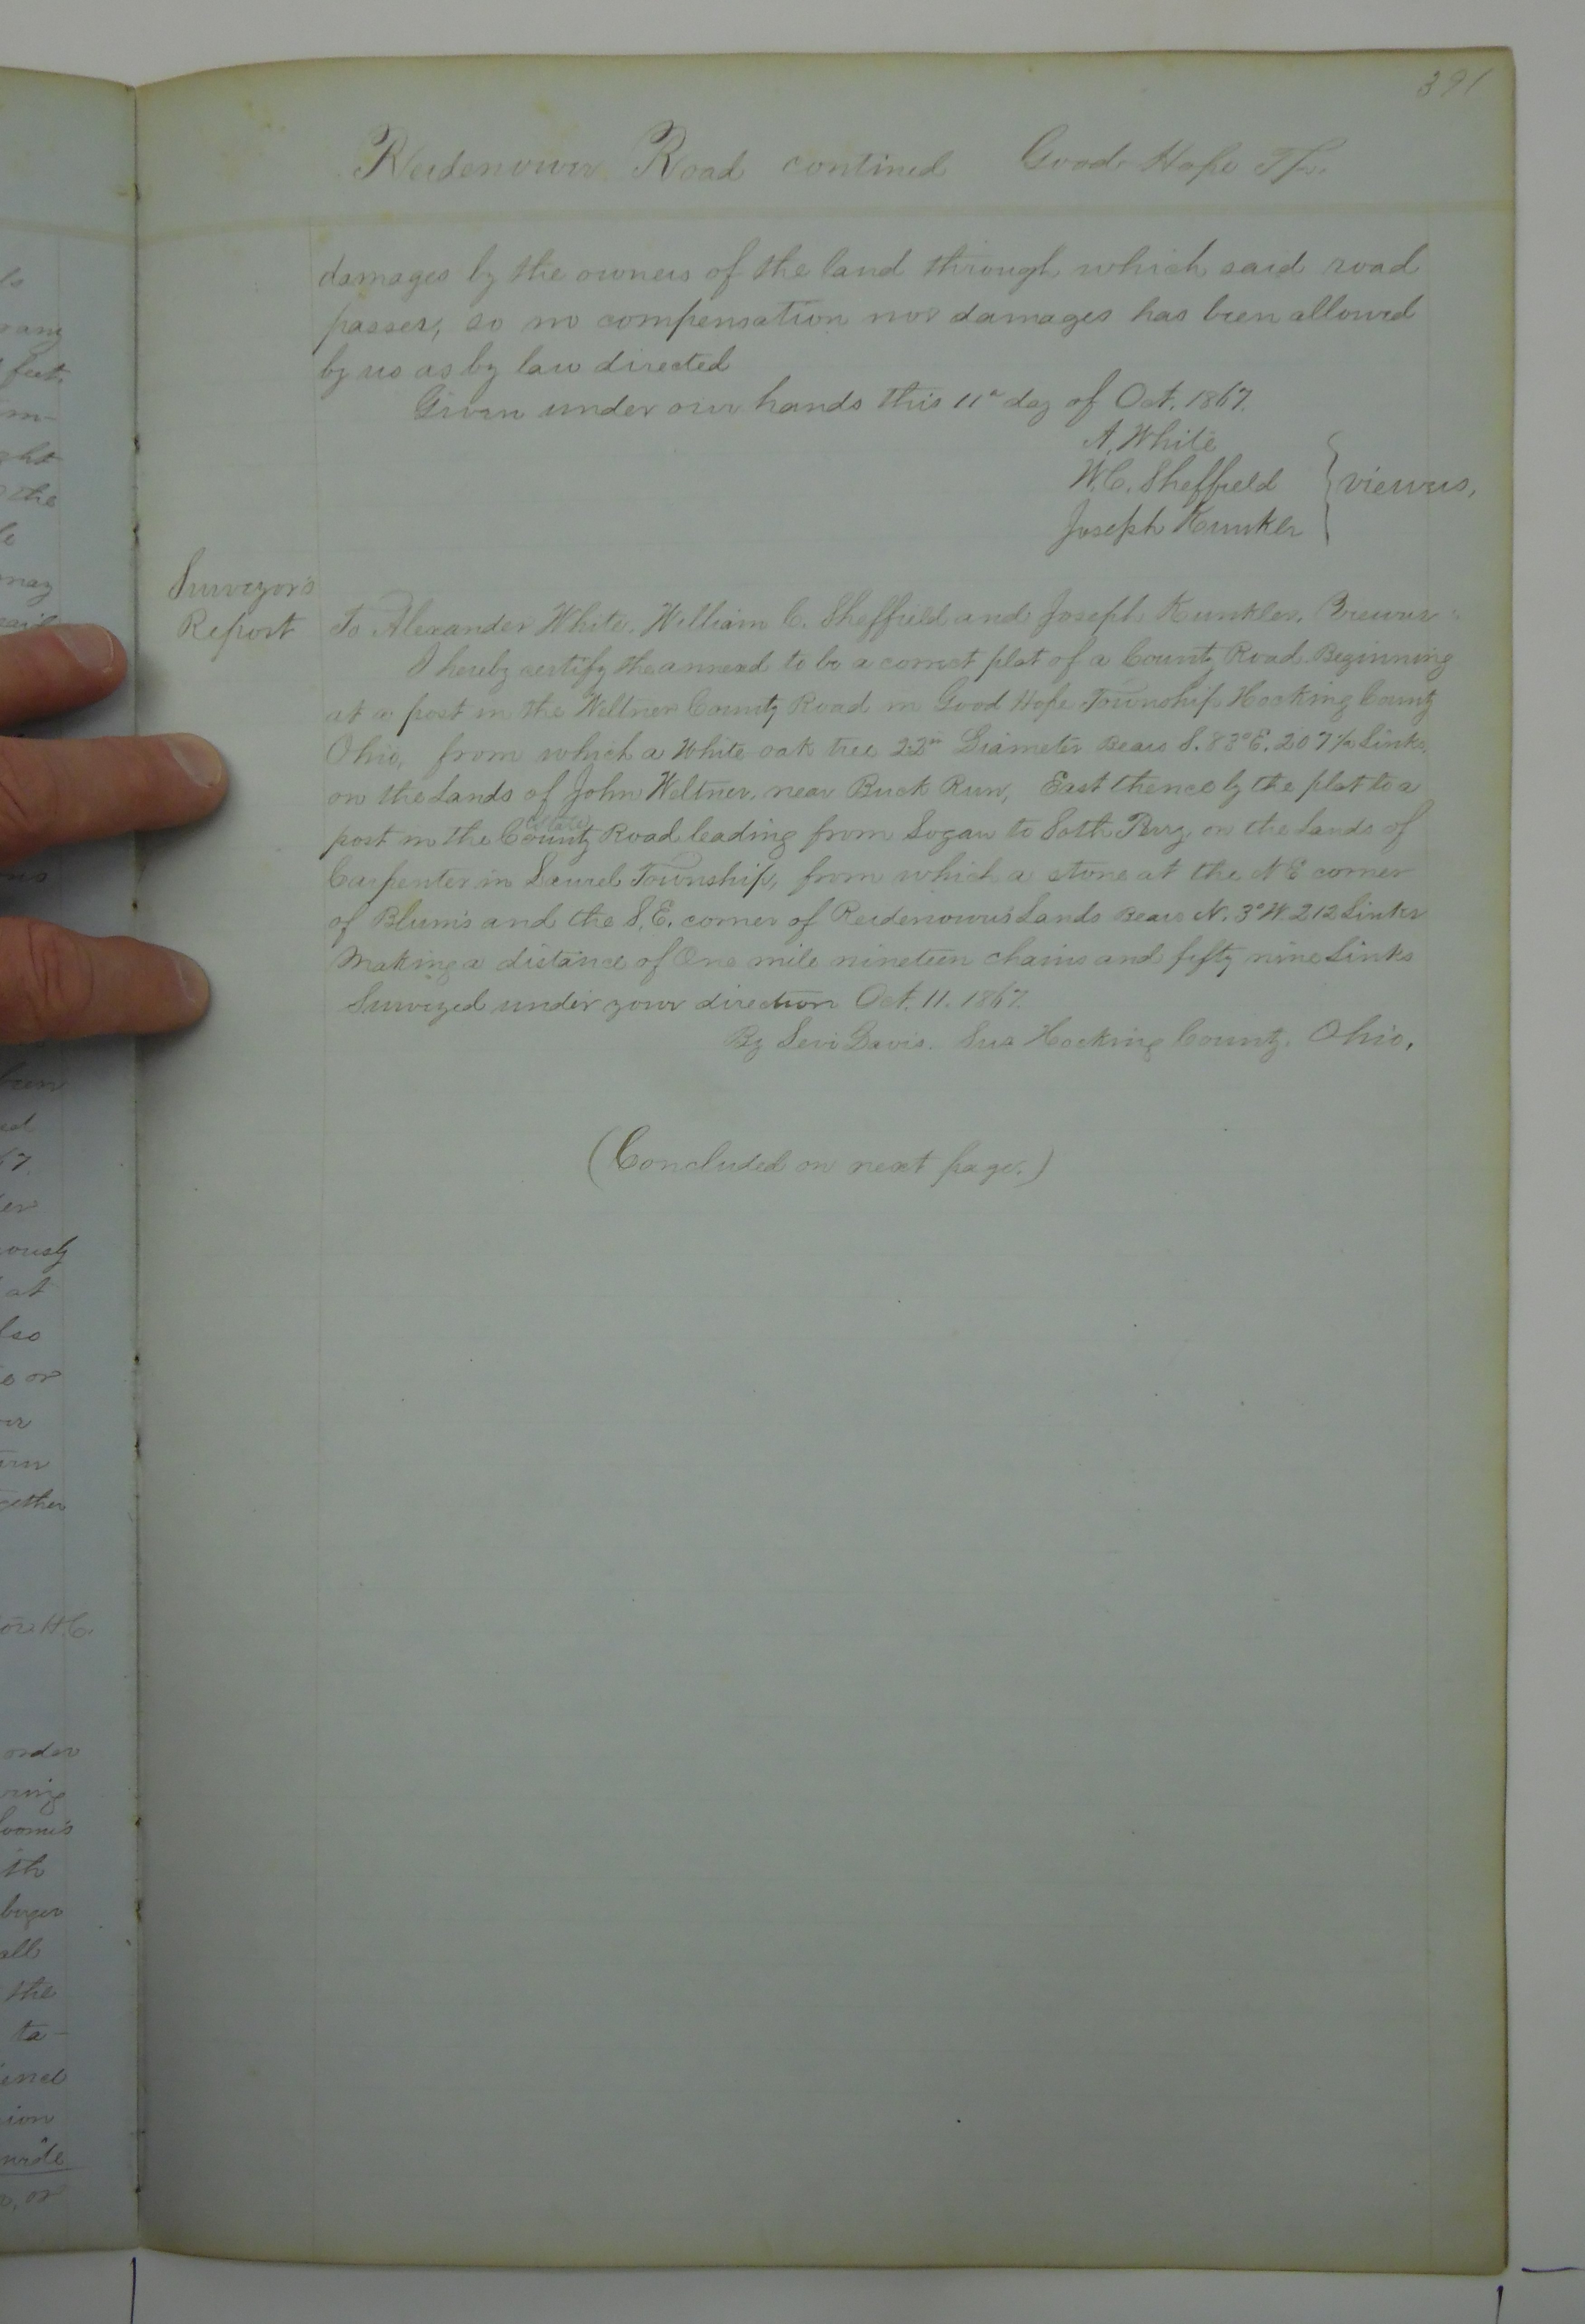 391
Reidenouer Road contined Good Hope Tp.
damages by the owners of the land through which said road
passes, so no compensation nor damages has been allowed
by us as by law directed
Given under our hands this 11th day of Oct. 1867.
A. White
W. C. Sheffield } viewers,
Joseph Kunkler
Surveyor's
Report
To Alexander White, William C. Sheffield and Joseph Kunkler,
I hereby certify the annexed to be a correct plat of a County Road Beginning
at a post in the Weltner County Road in Good Hope Township Hocking County
Ohio, from which a White oak tree 22in Diameter Bears S. 83° E. 207½ Links,
on the Lands of John Weltner, near Buck Run, East thence by the plat to a
post in the County Road leading from Logan to on the Lands of
Carpenter in Laurel Township, from which a stone at the N E corner
of Blum's and the S. E. corner of Reidenouer's Lands Bears N. 3° W. 212 Links
Making a distance of One mile nineteen chains and fifty nine Links
Surveyed under your direction Oct. 11. 1867.
By Levi Davis. Sur Hocking County. Ohio.
(Concluded on next page.)
ouny
feet,
m-
ght
the
may
been
67.
ously
at
also
or
gether
order
oomis
ith
all
the
ta-
ion
wide
or